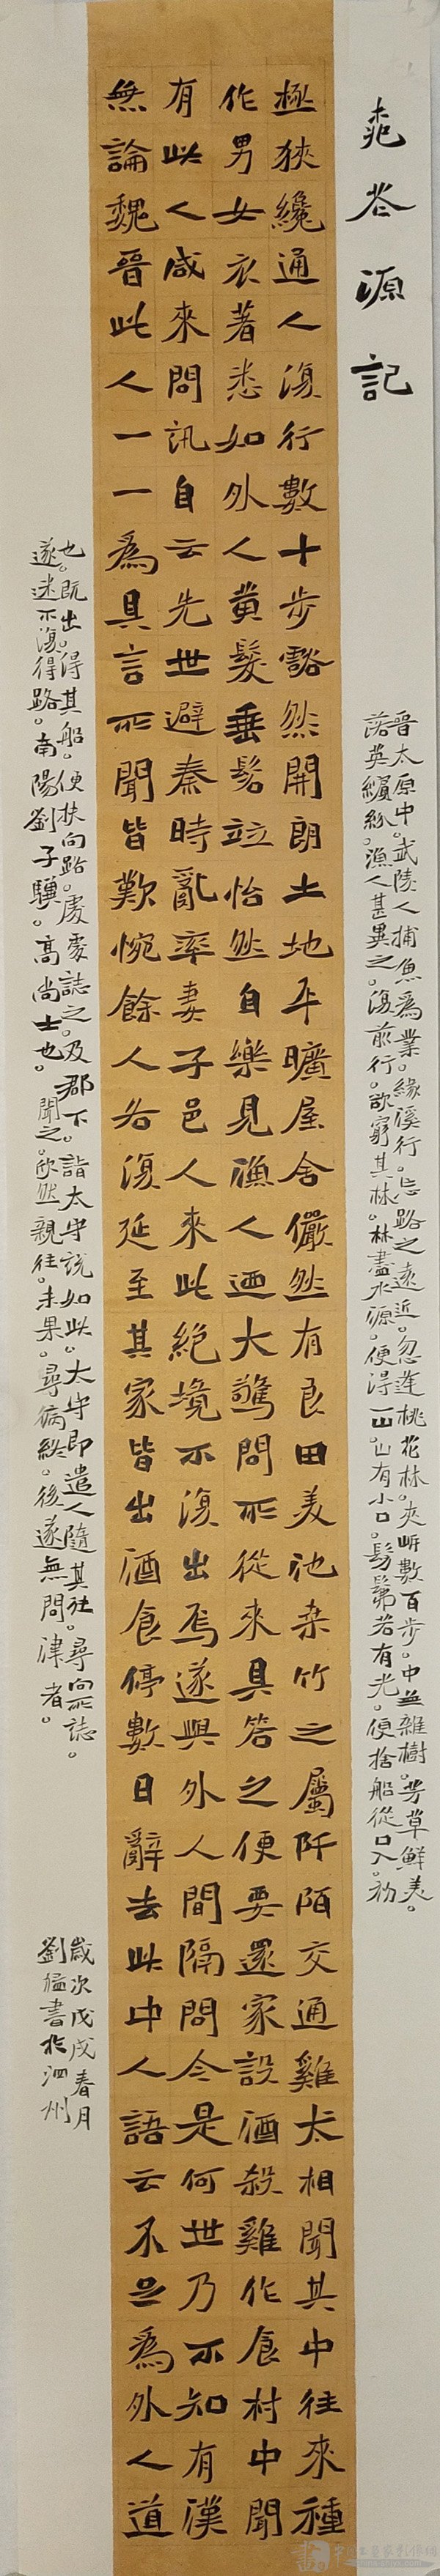 桃花源記
晉太原中。武陵人捕魚爲業。緣溪行。忘路之遠近。忽逢桃花林。夾岍數百步。中無雜樹。芳草鮮美。
落英繽紛。漁人甚異之。復前行。欲窮其林。林盡水源。便得一山。山有小口。髣髴若有光。便捨船從口入。初
極狹纔通人復行數十步豁然開朗土地平曠屋舍儼然有良田美池桑竹之屬阡陌交通雞犬相聞其中往來種
作男女衣著悉如外人黄髮垂髫竝怡然自樂見漁人迺大驚問所從來具答之便要還家設酒殺雞作食村中聞
有此人咸來問訊自云先世避秦時亂率妻子邑人來此絕境不復出焉遂與外人間隔問今是何世乃不知有漢
無論魏晉此人一一爲具言所聞皆歎惋餘人各復延至其家皆出酒食停數日辭去此中人語云不足爲外人道
也。既出。得其船。便扶向路。處處誌之。及郡下。詣太守說如此。太守即遣人隨其往。尋向所誌。
遂迷不復得路。南陽劉子驥。高尚士也。聞之。欣然親往。未果。尋病終。後遂無問津者。
歲次戊戌春月
劉猛書於泗州